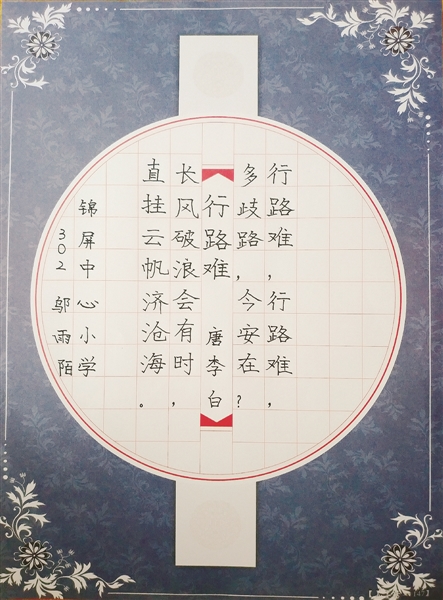 行路难，行路难，
多歧路，今安在？
行路难 唐李白
长风破浪会有时，
直挂云帆济沧海。
锦屏中心小学
302 邬雨陌